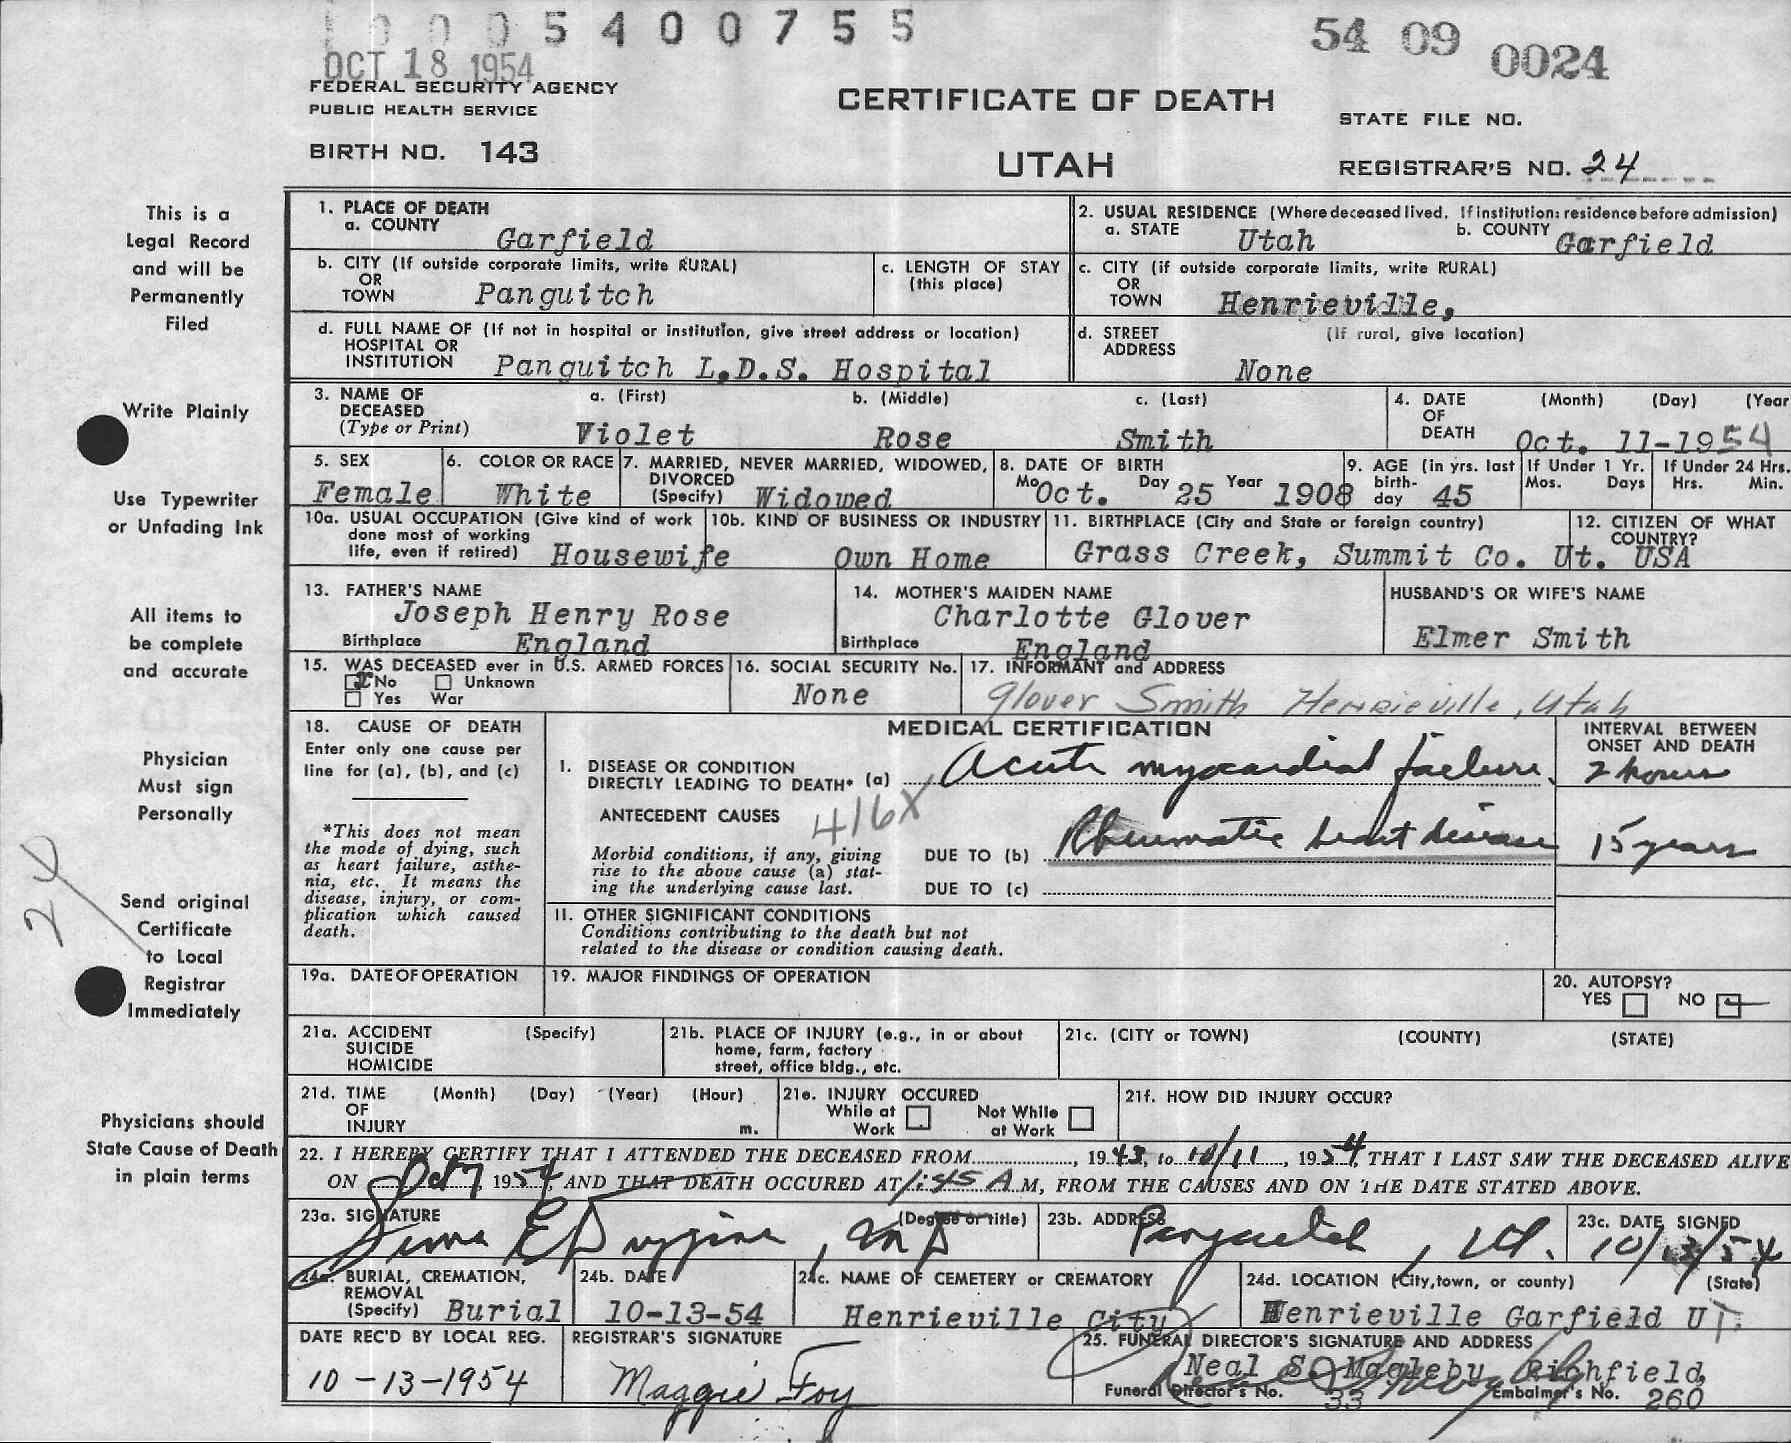 1 0 0 0 5 4 0 0 7 5 5
54 09 0024
OCT 18 1954
FEDERAL SECURITY AGENCY
PUBLIC HEALTH SERVICE
BIRTH NO. 143
CERTIFICATE OF DEATH
UTAH
STATE FILE NO.
REGISTRAR'S NO. 24
This is a
Legal Record
and will be
Permanently
Filed
Write Plainly
Use Typewriter
or Unfading Ink
All items to
be complete
and accurate
Physician
Must sign
Personally
24
Send original
Certificate
to Local
Registrar
Immediately
Physicians should
State Cause of Death
in plain terms
1. PLACE OF DEATH
a. COUNTY Garfield
2. USUAL RESIDENCE (Where deceased lived. If institution: residence before admission)
a. STATE Utah b. COUNTY Garfield
b. CITY (If outside corporate limits, write RURAL)
OR
TOWN Panguitch
c. LENGTH OF STAY
(this place)
c. CITY (if outside corporate limits, write RURAL)
OR
TOWN Henrieville,
d. FULL NAME OF (If not in hospital or institution, give street address or location)
HOSPITAL OR
INSTITUTION Panguitch L.D.S. Hospital
d. STREET (If rural, give location)
ADDRESS
None
3. NAME OF a. (First) b. (Middle) c. (Last)
DECEASED
(Type or Print) Violet Rose Smith
4. DATE (Month) (Day) (Year
OF
DEATH Oct. 11-1954
5. SEX
Female
6. COLOR OR RACE
White
7. MARRIED, NEVER MARRIED, WIDOWED,
DIVORCED
(Specify) Widowed
8. DATE OF BIRTH
Mo Oct. Day 25 Year 1908
9. AGE (in yrs. last
birth-
day 45
If Under 1 Yr.
Mos. Days
If Under 24 Hrs.
Hrs. Min.
10a. USUAL OCCUPATION (Give kind of work
done most of working
life, even if retired) Housewife
10b. KIND OF BUSINESS OR INDUSTRY
Own Home
11. BIRTHPLACE (City and State or foreign country)
Grass Creek, Summit Co. Ut.
12. CITIZEN OF WHAT
COUNTRY?
USA
13. FATHER'S NAME
Joseph Henry Rose
Birthplace England
14. MOTHER'S MAIDEN NAME
Charlotte Glover
Birthplace England
HUSBAND'S OR WIFE'S NAME
Elmer Smith
15. WAS DECEASED ever in U.S. ARMED FORCES
x No Unknown
Yes War
16. SOCIAL SECURITY No.
None
17. INFORMANT and ADDRESS
Glover Smith Henrieville, Utah
18. CAUSE OF DEATH
Enter only one cause per
line for (a), (b), and (c)
*This does not mean
the mode of dying, such
as heart failure, asthe-
nia, etc. It means the
disease, injury, or com-
plication which caused
death.
MEDICAL CERTIFICATION
INTERVAL BETWEEN
ONSET AND DEATH
I. DISEASE OR CONDITION
DIRECTLY LEADING TO DEATH* (a) Acute myocardial failure. 2 hours
ANTECEDENT CAUSES 416X
Morbid conditions, if any, giving
rise to the above cause (a) stat-
ing the underlying cause last.
DUE TO (b) Rheumatic heart disease 15 years
DUE TO (c)
II. OTHER SIGNIFICANT CONDITIONS
Conditions contributing to the death but not
related to the disease or condition causing death.
19a. DATE OF OPERATION
19. MAJOR FINDINGS OF OPERATION
20. AUTOPSY?
YES NO
21a. ACCIDENT (Specify)
SUICIDE
HOMICIDE
21b. PLACE OF INJURY (e.g., in or about
home, farm, factory
street, office bldg., etc.
21c. (CITY or TOWN) (COUNTY) (STATE)
21d. TIME (Month) (Day) (Year) (Hour)
OF
INJURY m.
21e. INJURY OCCURED
While at Not While
Work at Work
21f. HOW DID INJURY OCCUR?
22. I HEREBY CERTIFY THAT I ATTENDED THE DECEASED FROM , 1943, to 10/11, 1954, THAT I LAST SAW THE DECEASED ALIVE
ON Oct 7 1954 AND THAT DEATH OCCURED AT 1:45 A M, FROM THE CAUSES AND ON THE DATE STATED ABOVE.
23a. SIGNATURE (Degree or title)
Sims E Duggins, MD
23b. ADDRESS
Panguitch, Ut.
23c. DATE SIGNED
10/13/54
24a. BURIAL, CREMATION,
REMOVAL
(Specify) Burial
24b. DATE
10-13-54
24c. NAME OF CEMETERY or CREMATORY
Henrieville City
24d. LOCATION (City, town, or county) (State)
Henrieville Garfield UT.
DATE REC'D BY LOCAL REG.
10-13-1954
REGISTRAR'S SIGNATURE
Maggie Foy
25. FUNERAL DIRECTOR'S SIGNATURE AND ADDRESS
Neal S. Magleby Richfield,
Funeral Director's No. 33 Embalmer's No. 260